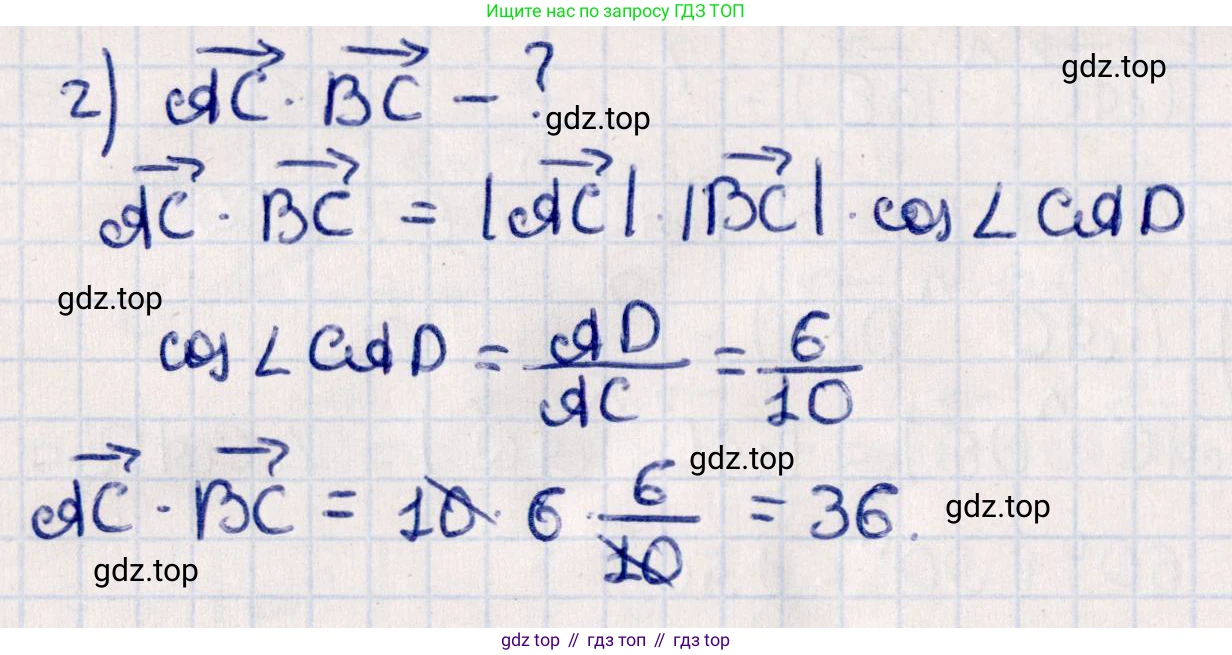 Ищите нас по запросу ГДЗ ТОП
gdz.top
г) AC · BC – ?
gdz.top
AC · BC = |AC| · |BC| · cos ∠ CAD
gdz.top
cos ∠ CAD = AD/AC = 6/10
gdz.top
AC · BC = 10 · 6 · 6/10 = 36.
gdz.top
gdz.top
gdz top // гдз топ // гдз top